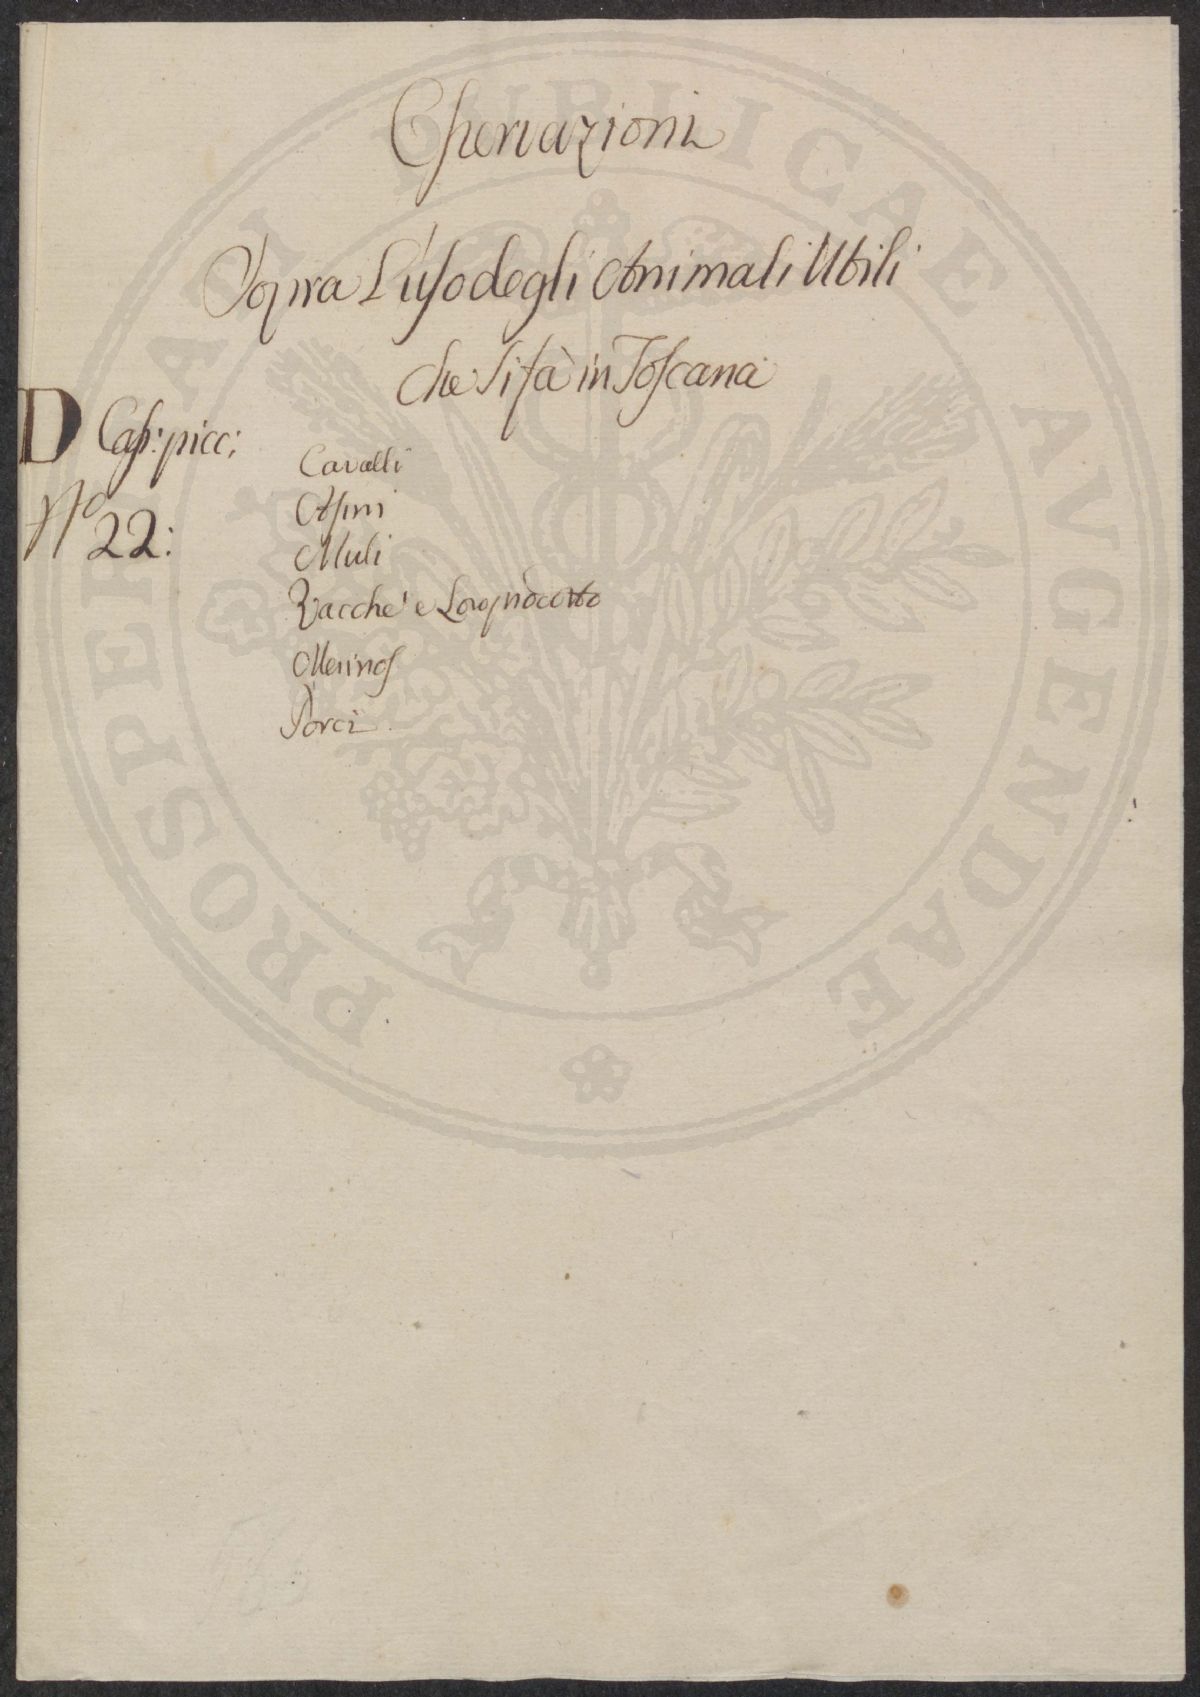 Osservazioni
Sopra L'uso degli Animali Utili
che si fà in Toscana
D Cass: picc:
N.o 22:
Cavalli
Asini
Muli
Vacche e Loro prodotto
Merinos
Porci
PROSPERITATI PUBLICAE AVGENDAE